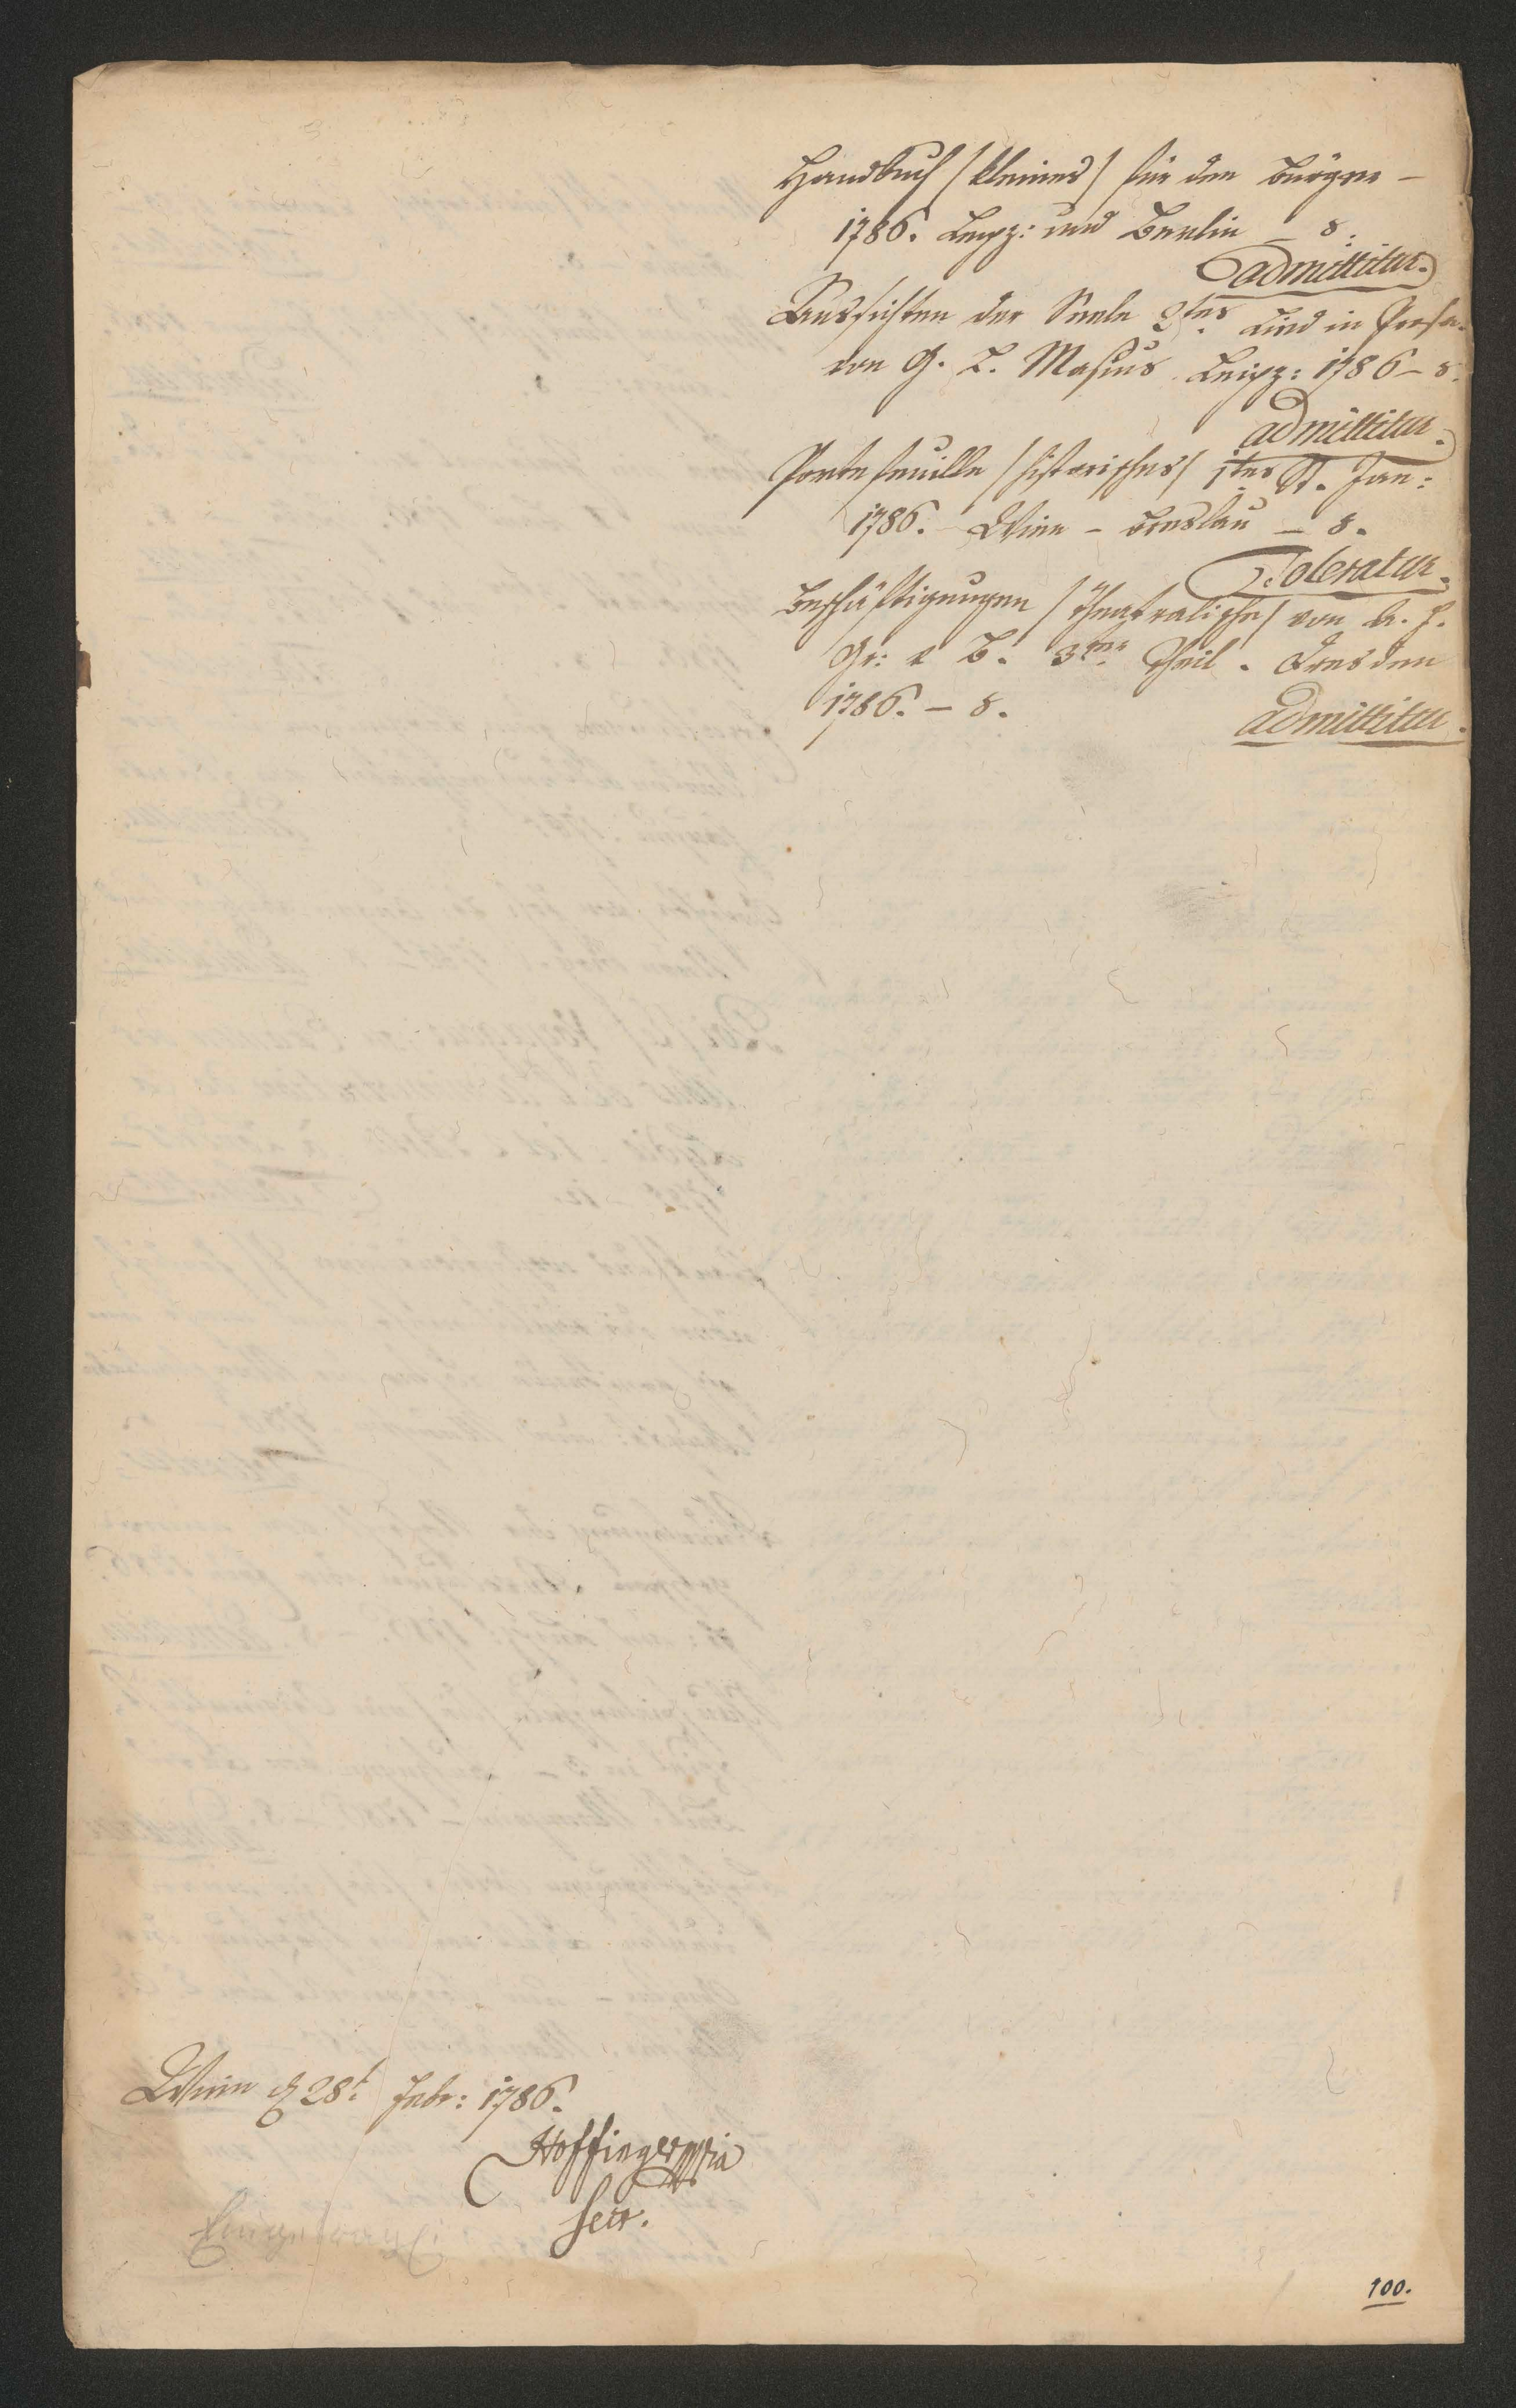 Handbuch /kleines/ für den Bürger –
1786. Leipz: und Berlin – 8.
admittitur.
Aussichten der Seele 2tes Lied in Prosa.
von G. L. Masius Leipz: 1786 – 8.
admittitur.
Portefeuille /historisches/ 1tes St. Jan:
1786. Wien – Breslau – 8.
Toleratur.
Beschäftigungen /theatralische/ von A. f.
Gr: v B. 3ter Theil. Dresden
1786. – 8.
admittitur.
Wien d 28t Febr: 1786.
Hoffinger mpria
Secr.
100.